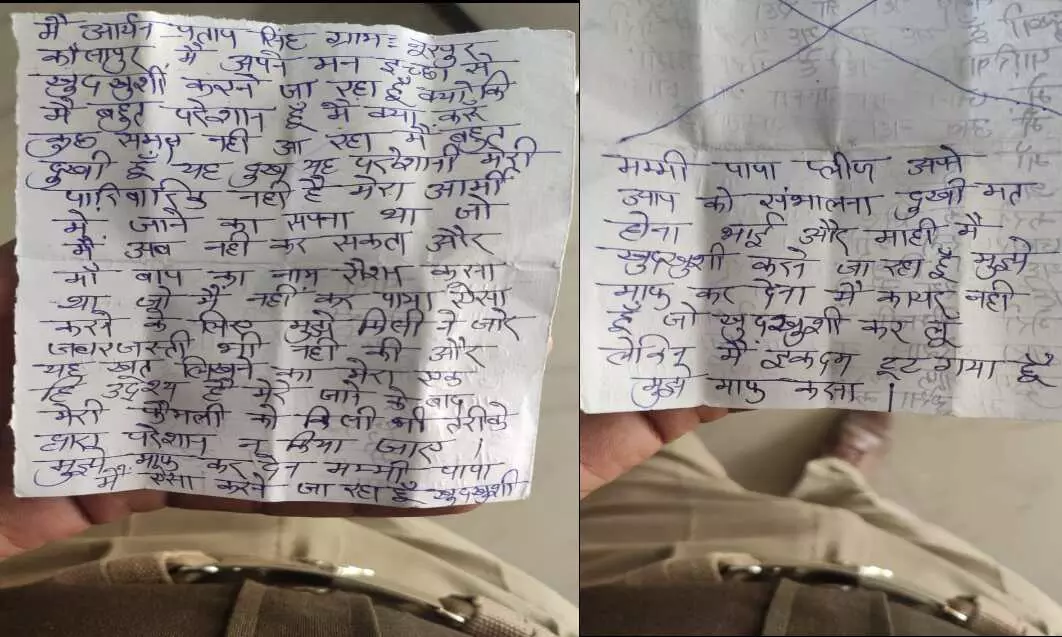 मै आर्यन प्रताप सिंह ग्राम
कौलापुर मै अपने मन इच्छा से
खुदखुशी करने जा रहा हूँ क्योकि
मै बहुत परेशान हूँ मै क्या करू
कुछ समझ नही आ रहा मै बहुत
दुखी हूँ यह दुख यह परेशानी मेरी
पारिवारिक नही है मेरा आर्मी
मे जाने का सपना था जो
मै अब नही कर सकता और
माँ बाप का नाम रोशन करना
था जो मै नही कर पाया ऐसा
करने के लिए मुझे किसी ने जोर
जबरजस्ती भी नही की और
यह खत लिखने का मेरा एक
हि उद्देश्य है मेरे जाने के बाद
मेरी फैमली को किसी भी तरीके
द्वारा परेशान न किया जाए ।
मुझे माफ कर देन मम्मी पापा
मै ऐसा करने जा रहा हूँ खुदखुशी
मम्मी पापा प्लीज अपने
आप को संभालना दुखी मत
होना भाई और माही मै
खुदखुशी करने जा रहा हूँ मुझे
माफ कर देना मै कायर नही
हूँ जो खुदखुशी कर लू
लेकिन मै इकदम टूट गया हूँ
मुझे माफ करना ।